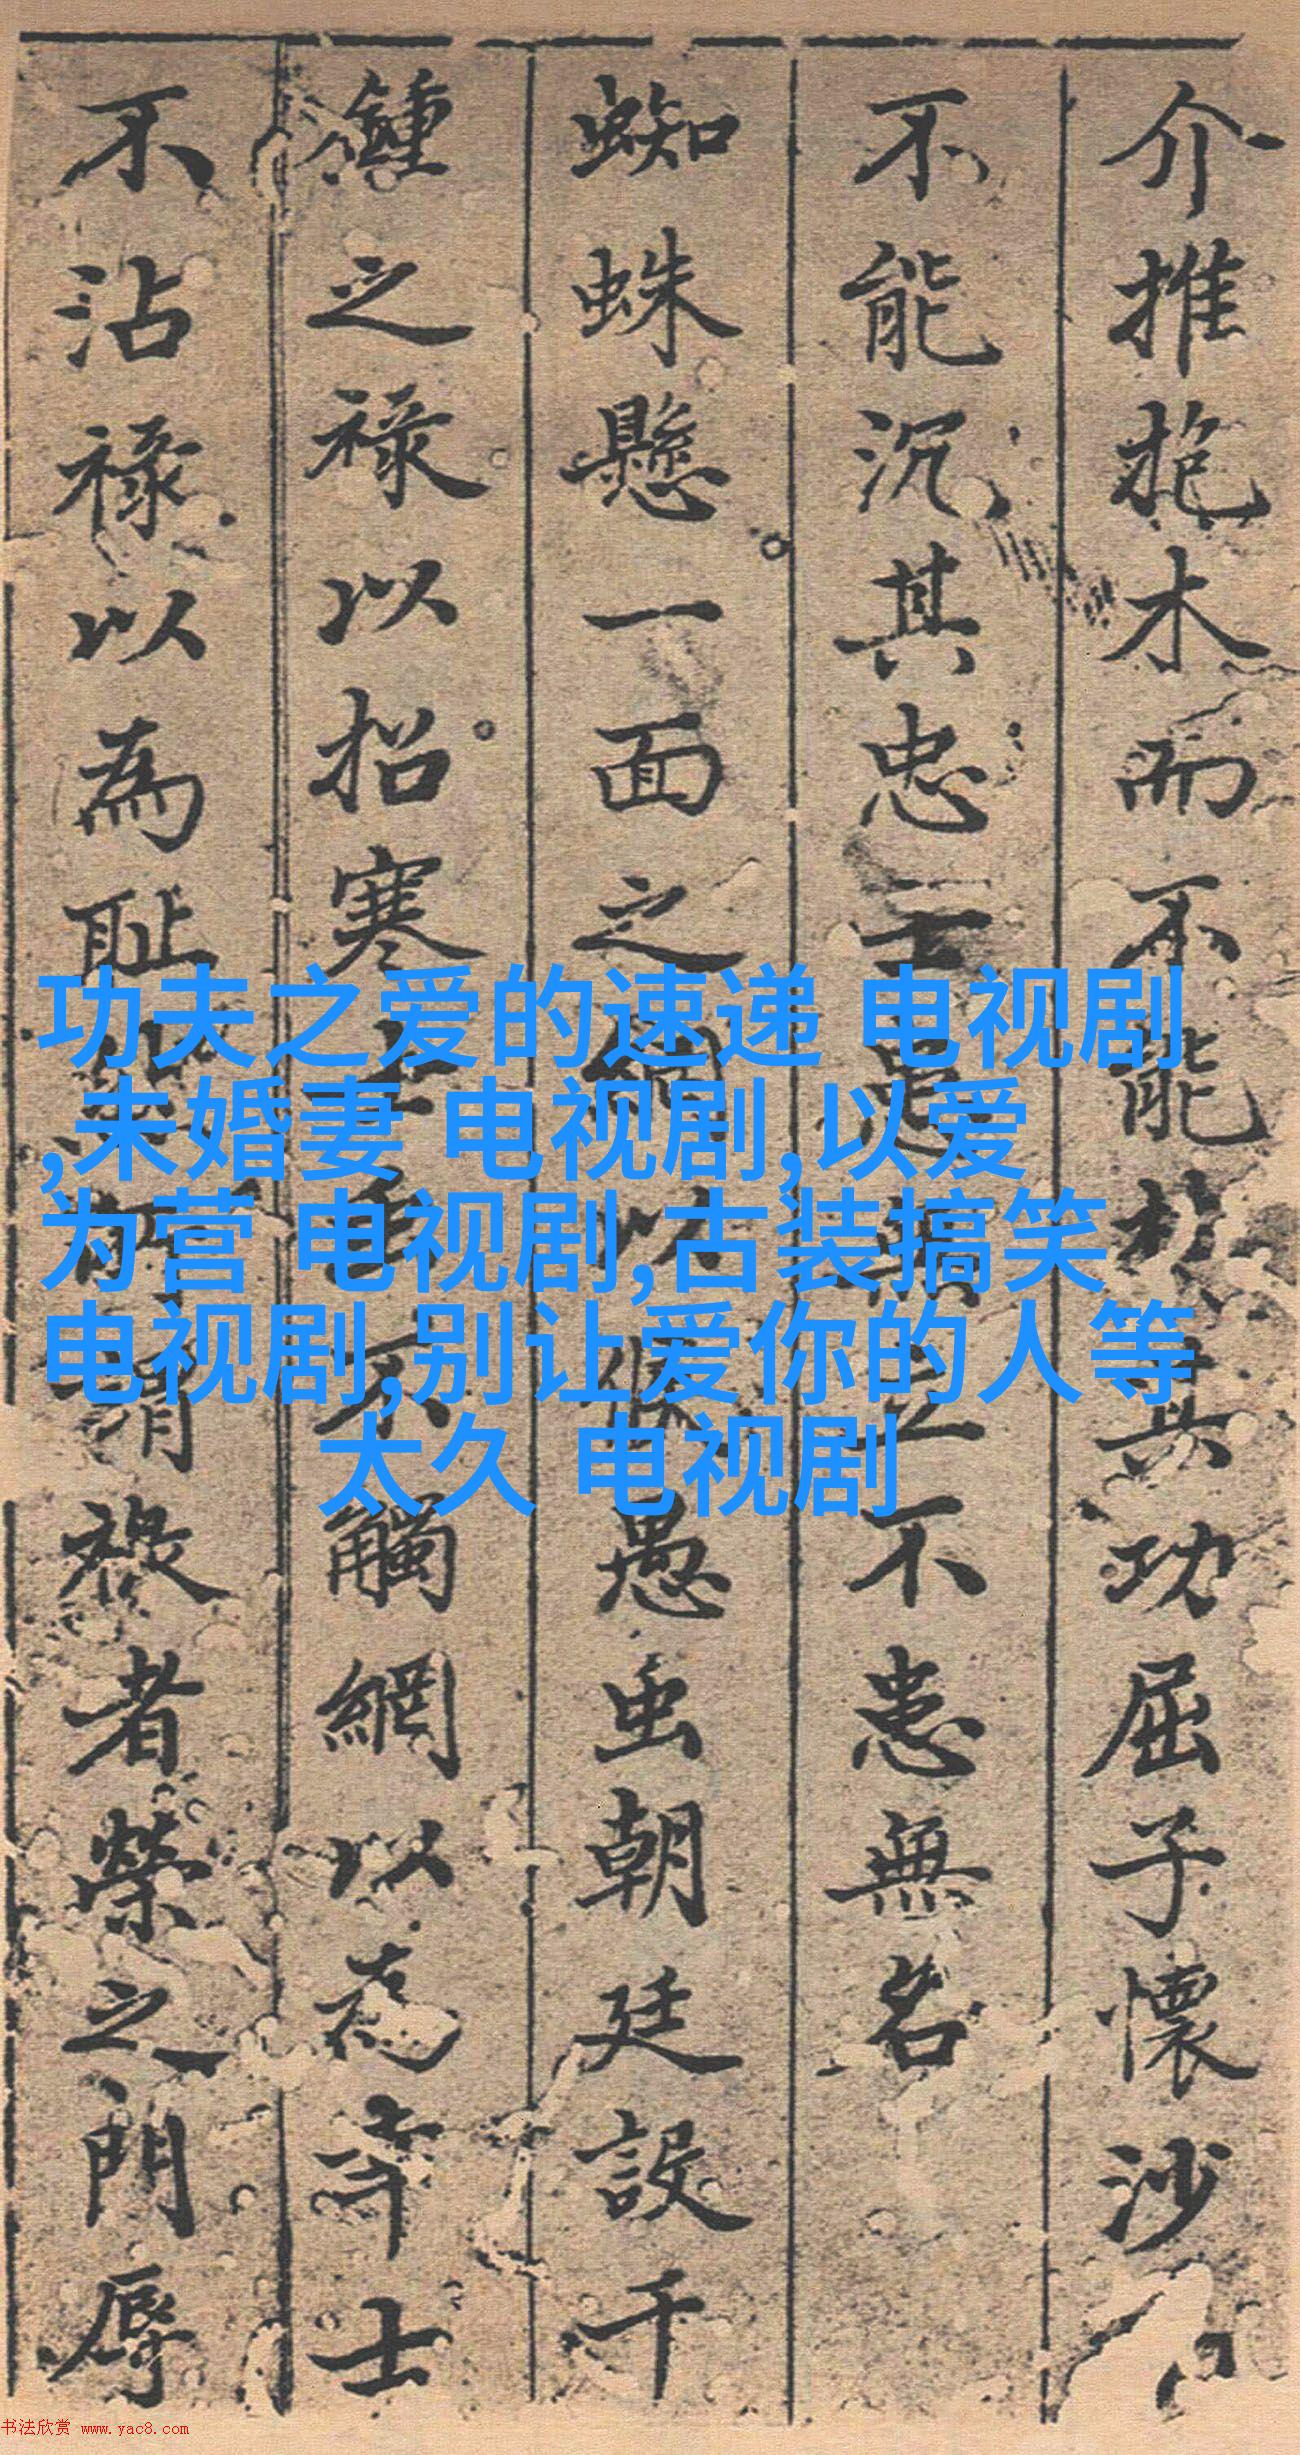 功夫之爱的速递 电视剧
,未婚妻 电视剧,以爱
为营 电视剧,古装搞笑
电视剧,别让爱你的人等
太久 电视剧
介推抱木而不能朽其功屈子懷沙
不能沉其忠士患無立不患無名
蜘蛛懸一面之網以愚虫朝廷設千
鍾之祿以招寒士不觸網以為幸士
不沾祿以為恥所謂祿者榮之門辱
书法欣赏 www.yac8.com